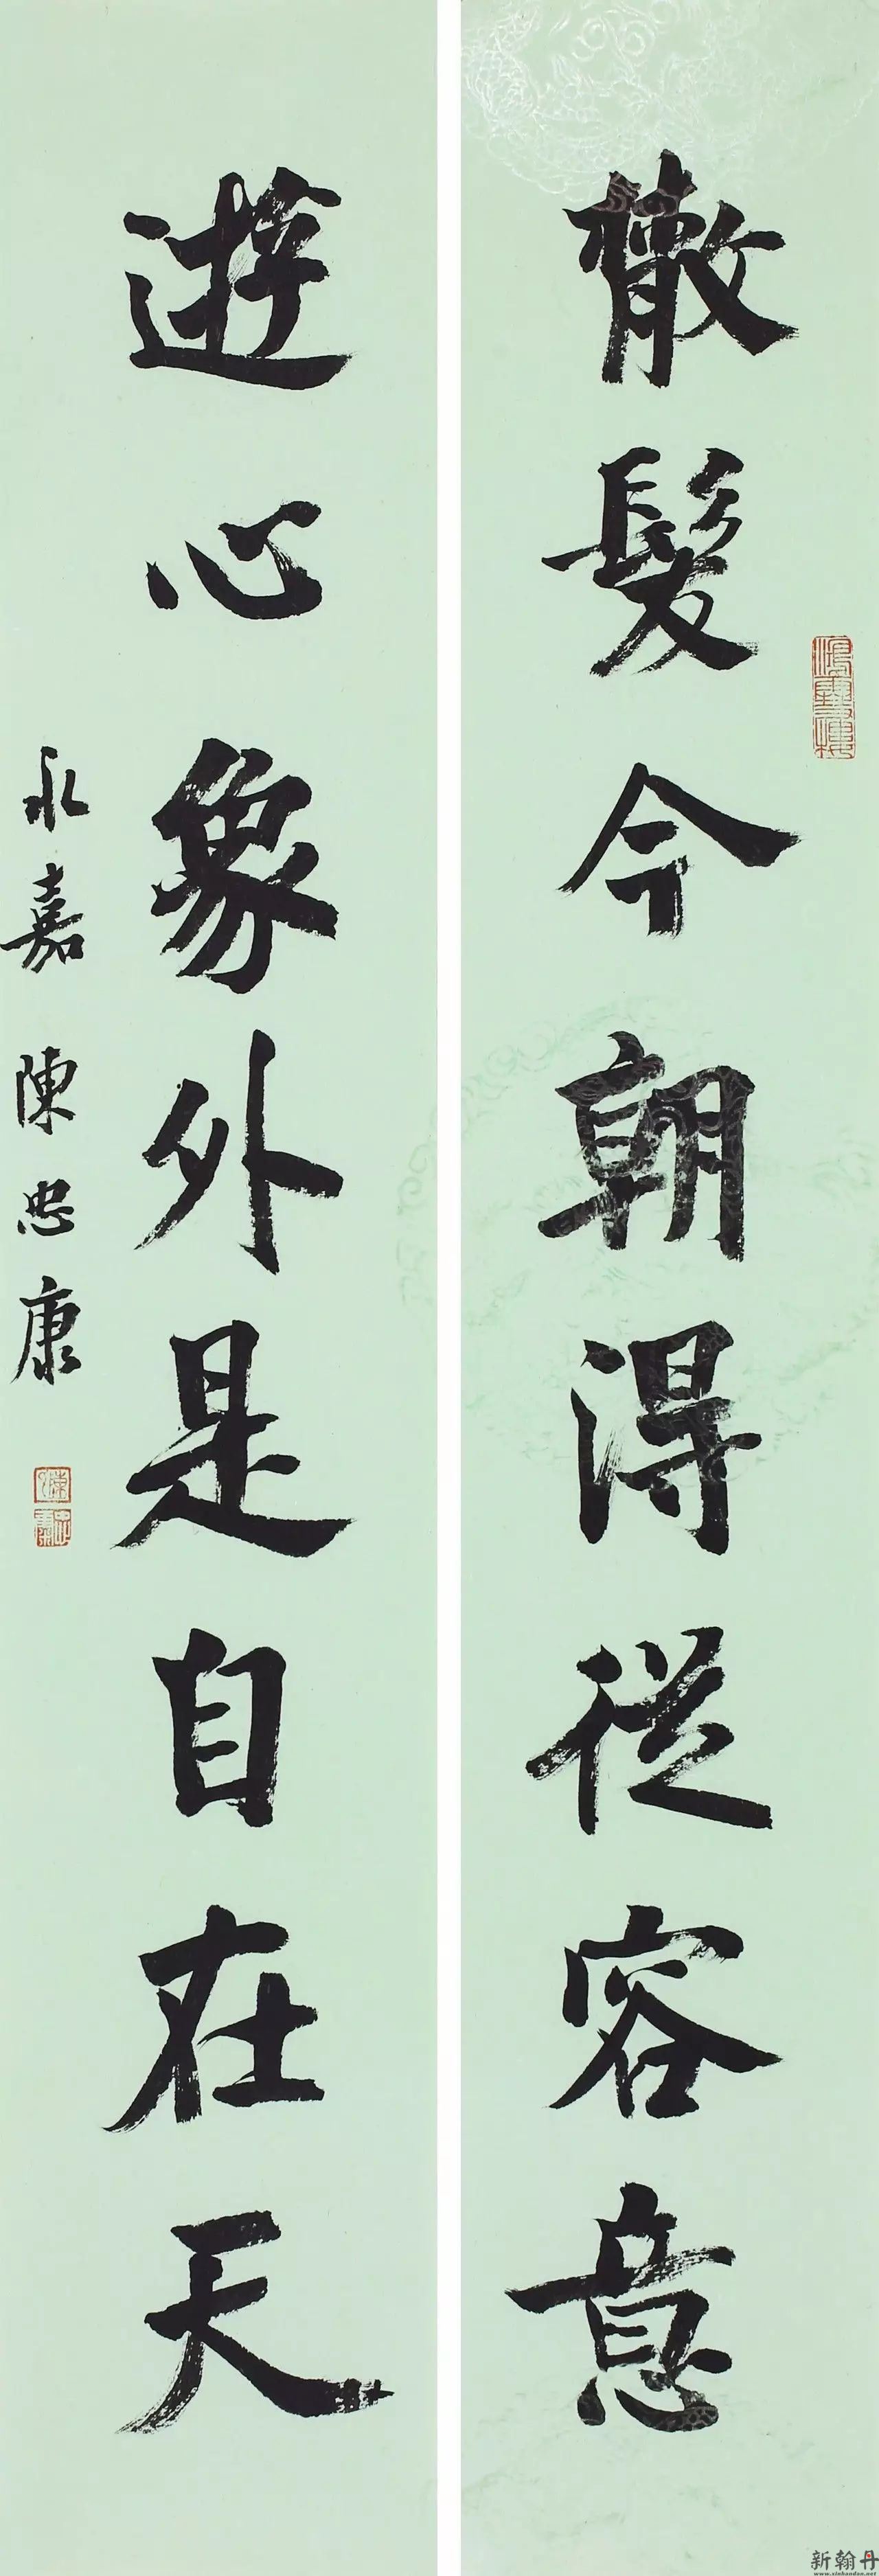 散髮今朝得從容意
遊心象外是自在天
永嘉 陳忠康
陳忠康
新翰丹
www.xinhandan.net